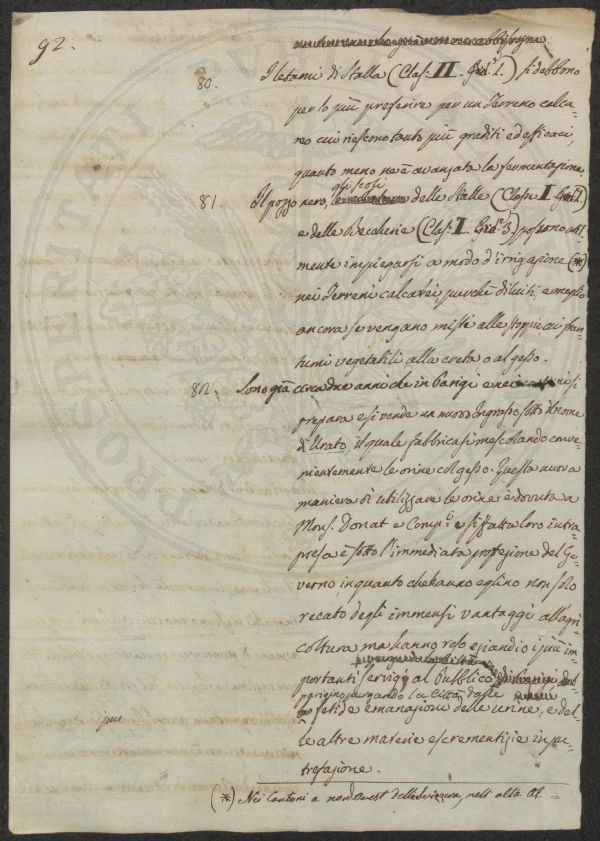 92.
80. I letami di Stalla (Clas: II. Grd.e 1.) si debbono
per lo più preferire per un Terreno calca-
reo cui riescono tanto più graditi ed efficaci,
quanto meno ne è avanzata la fermentazione
gli scoli
81. Il pozzo nero, delle Stalle (Classe I Grd.e 1.)
e delle Beccherie (Clas: I. Grd.e 3.) possono util-
mente impiegarsi a modo d'irrigazione (*)
nei Terreni calcarei, purchè diluiti, e meglio
ancora se vengano misti alle stoppie ai fran-
tumi vegetabili alla creta o al gesso.
82. Sono già circa due anni che in Parigi si
prepara e si vende un nuovo Ingrasso sotto il nome
di Urato, il quale fabbricasi mescolando conve-
nientemente le orine col gesso. Questa nuova
maniera di utilizzare le orine è dovuta a
Mons. Donat e Comp.i e siffatta loro intra-
presa è sotto l'immediata protezione del Go-
verno, in quanto che hanno eglino non solo
recato degli immensi vantaggi all'agri-
coltura ma hanno reso eziandio i più im-
portanti servigi al Pubblico
parigino purgando la Città dalle
fetide emanazioni delle urine, e del-
le altre materie escrementizie in pu-
trefazione.
(*) Nei Cantoni a nord ouest della Svizzera, nell'alta Al-